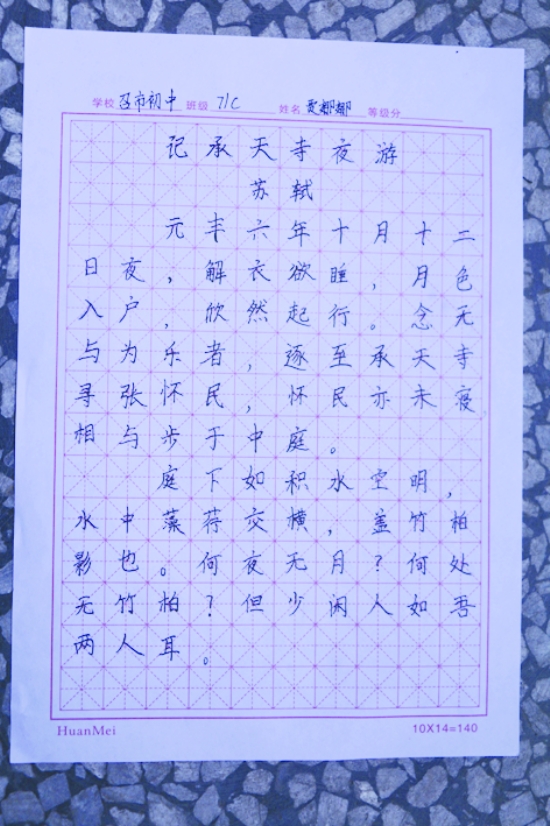 学校 召市初中 班级 7/C 姓名 等级分
记承天寺夜游
苏轼
元丰六年十月十二
日夜，解衣欲睡，月色
入户，欣然起行。念无
与为乐者，逐至承天寺
寻张怀民，怀民亦未寝
相与步于中庭。
庭下如积水空明，
水中藻荇交横，盖竹柏
影也。何夜无月？何处
无竹柏？但少闲人如吾
两人耳。
HuanMei 10X14=140